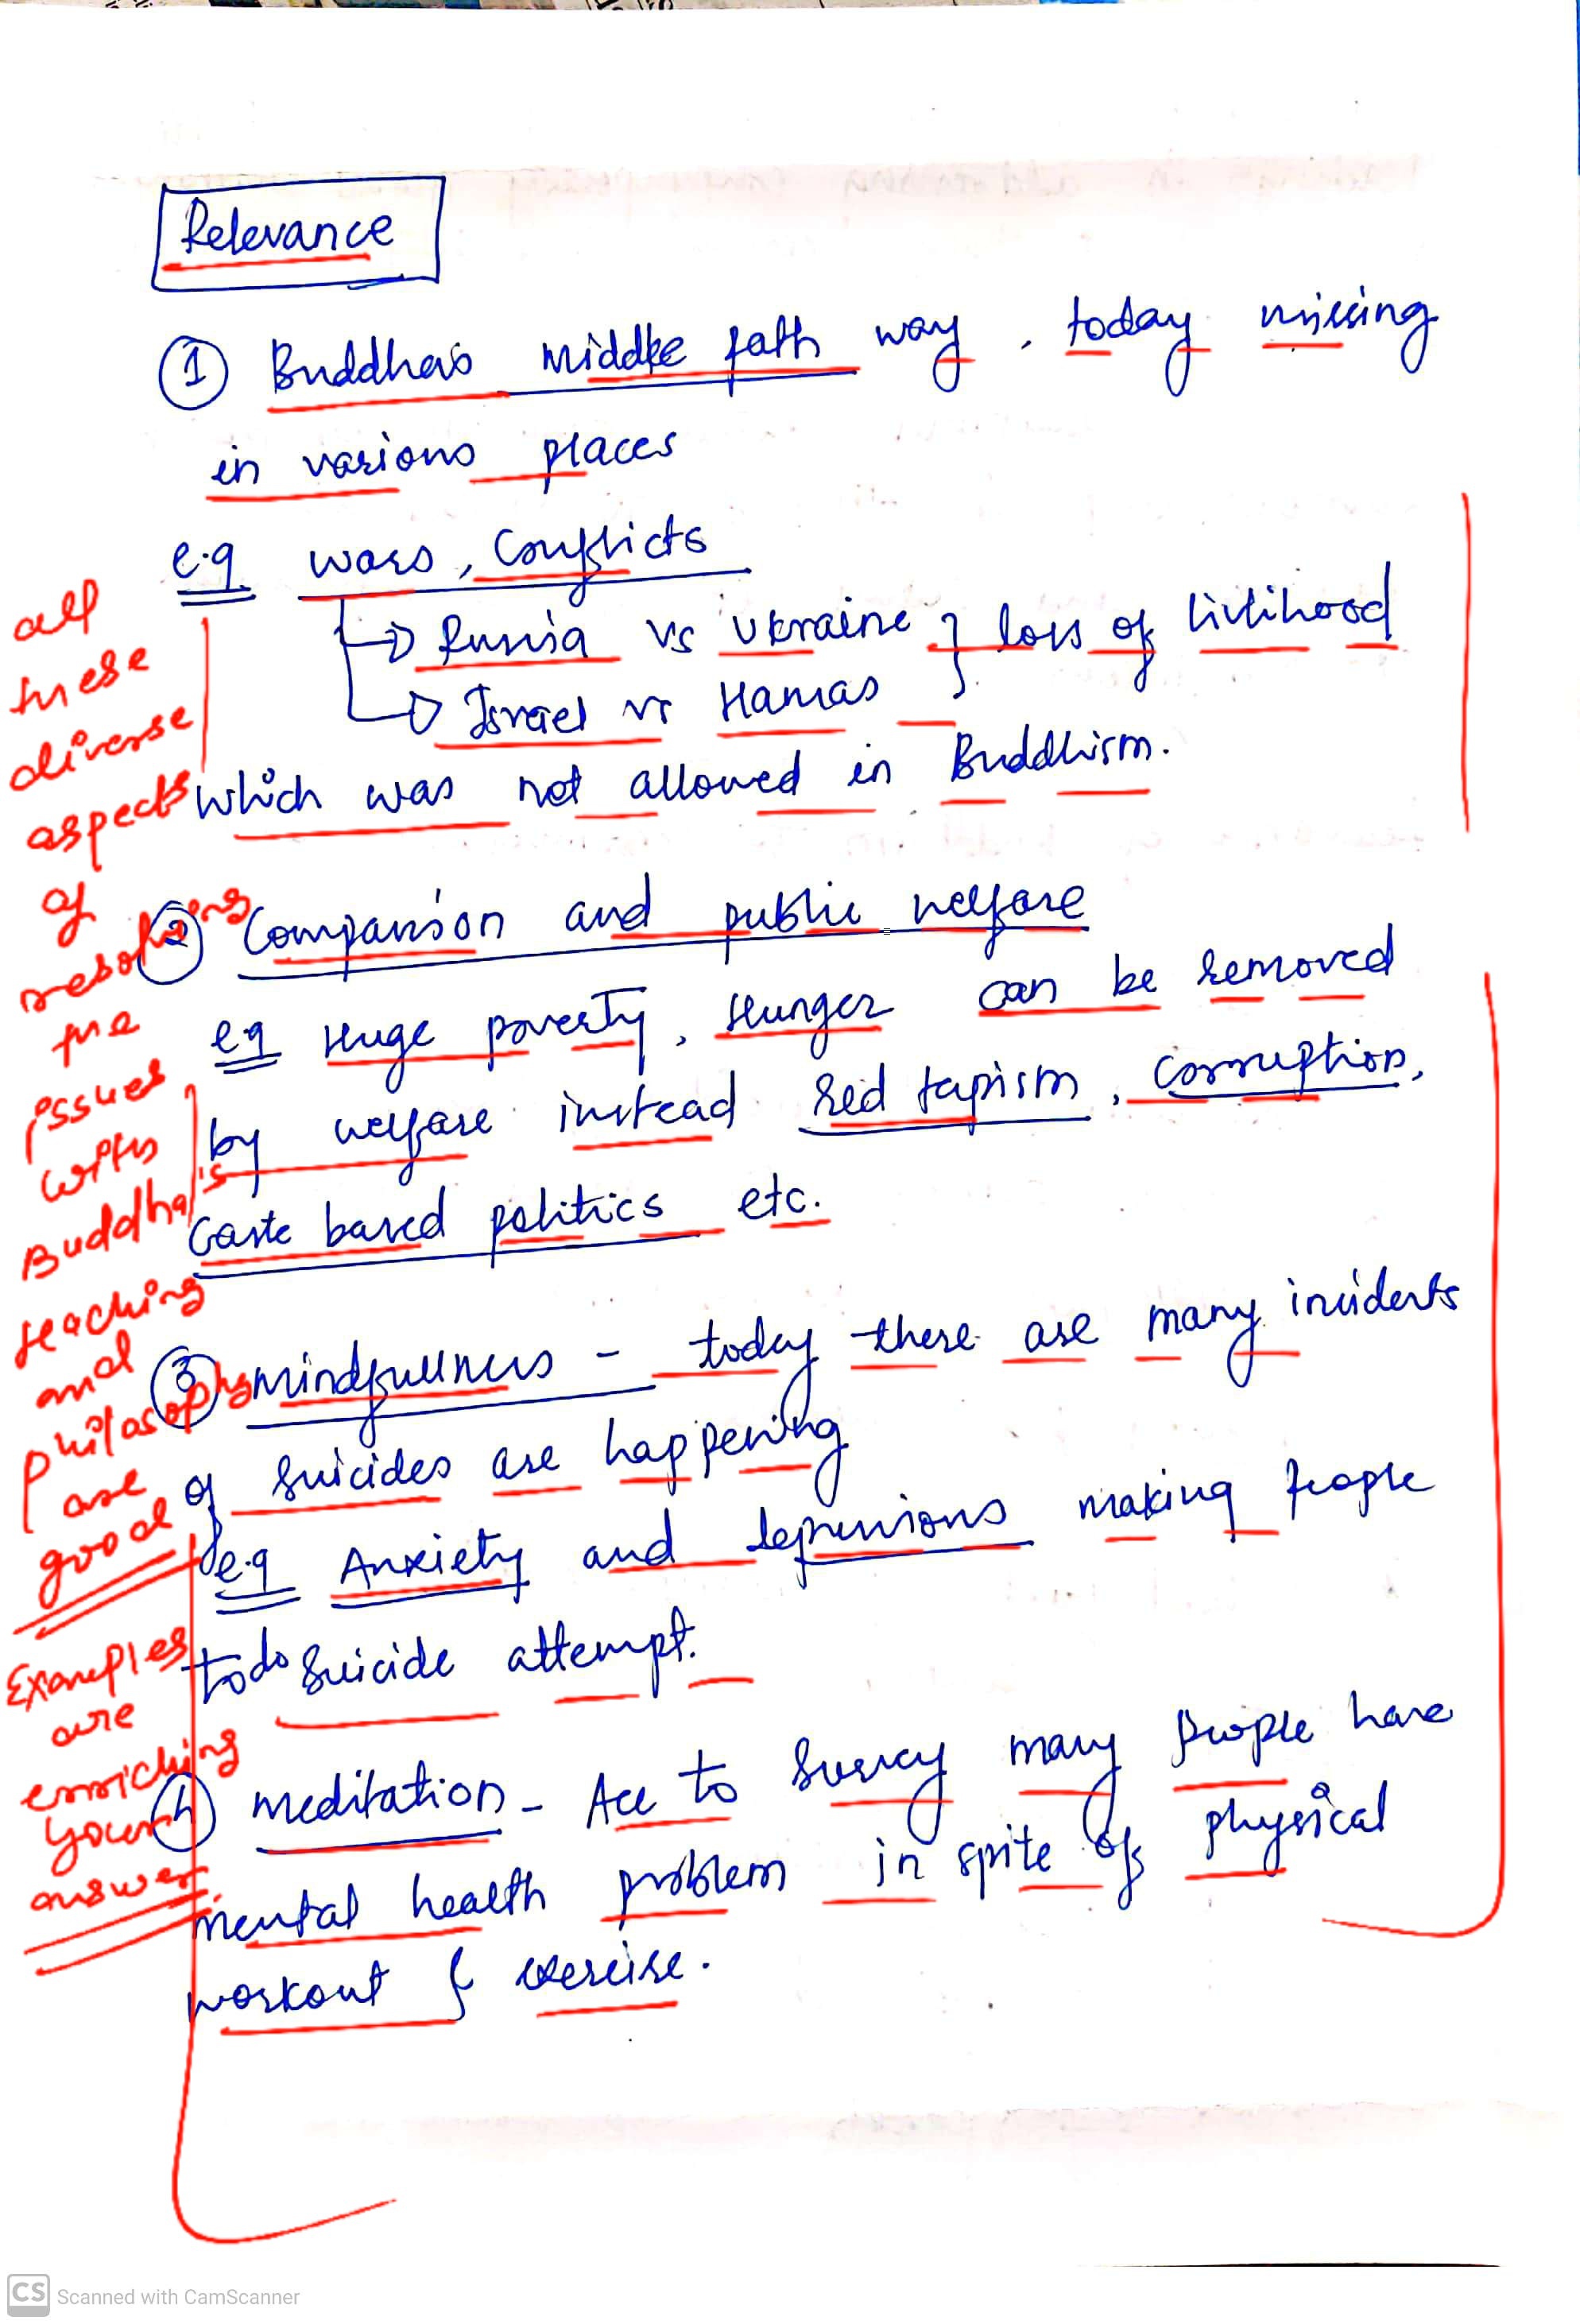 Relevance
① Buddha's middle path way, today missing
in various places
e.g wars, Conflicts
→ Russia vs Ukraine } loss of livlihood
→ Israel vs Hamas
which was not allowed in Buddhism.
② Compassion and public welfare
eg Huge poverty, Hunger can be removed
by welfare instead Red tapism, Corruption,
Caste based politics etc.
③ mindfullness - today there are many incidents
of suicides are happening
e.g Anxiety and depressions making people
to do suicide attempt.
④ meditation - Acc to survey many people have
mental health problem in spite of physical
workout & exercise.
all
these
diverse
aspects
of
resolving
the
issues
with
Buddha's
teaching
and
philosophy
are
good
Examples
are
enriching
your
answer.
CS Scanned with CamScanner